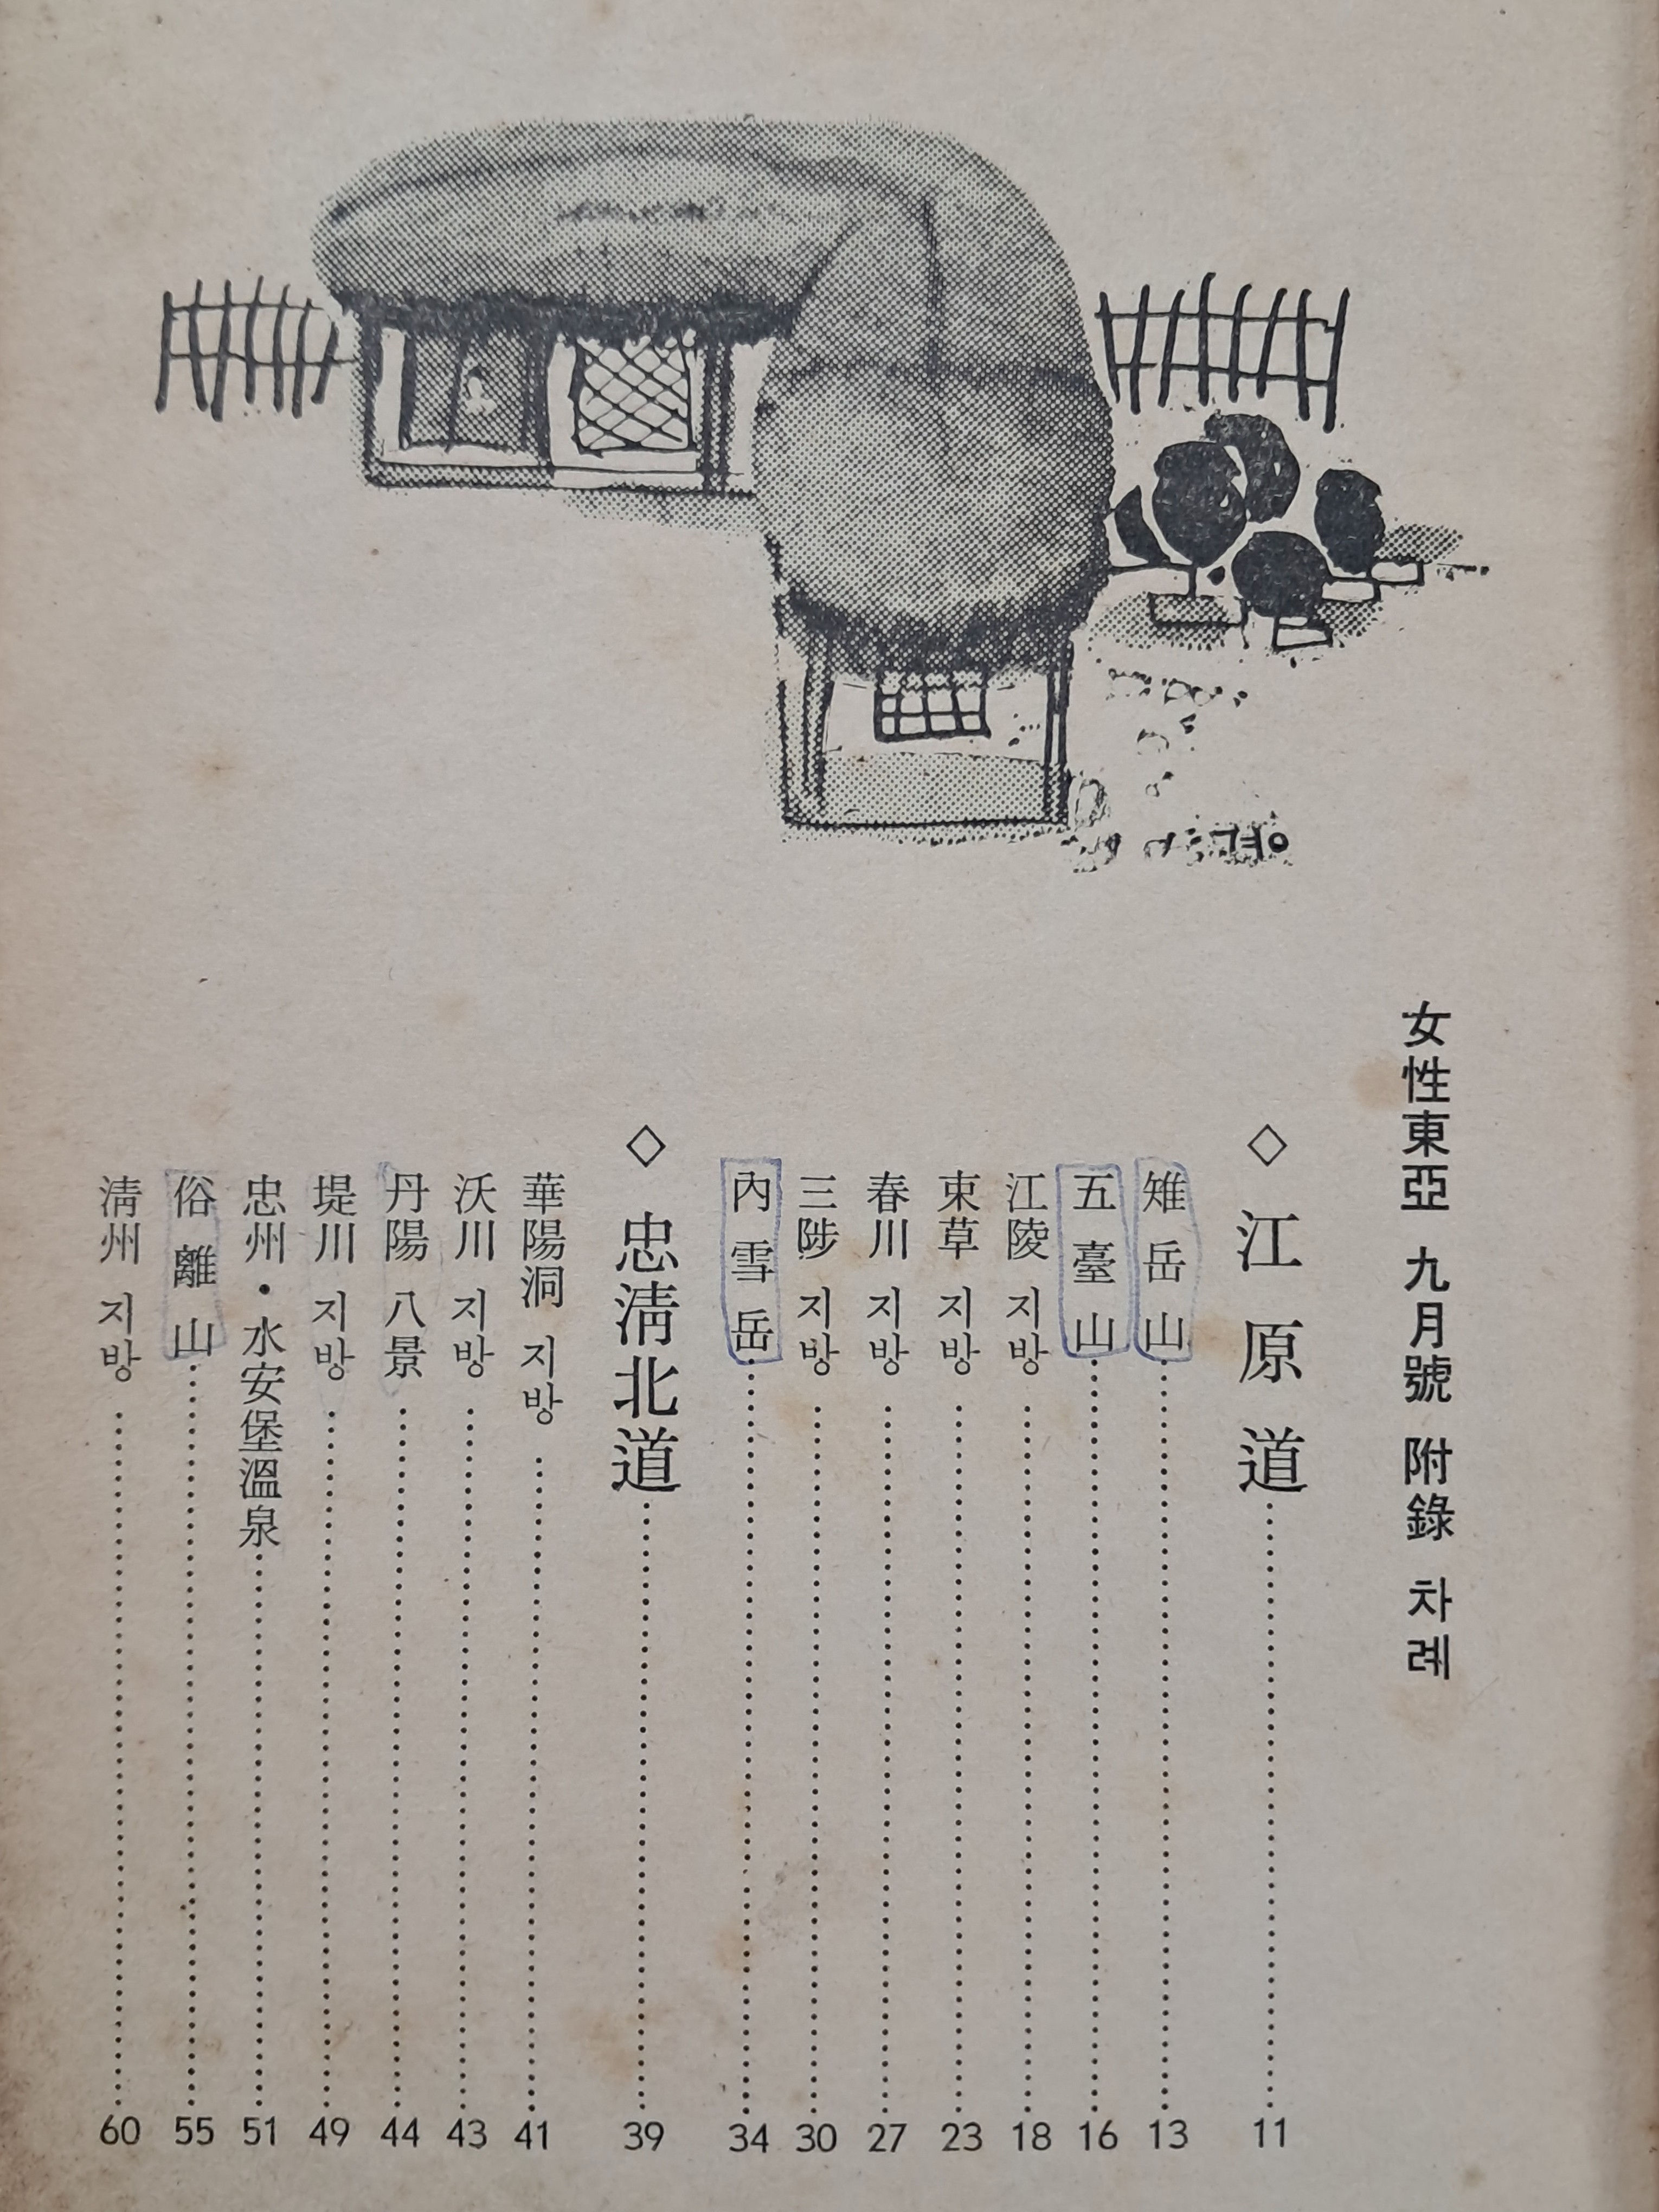 女性東亞 九月號 附錄 차례
◇ 江原道 11
雉岳山 13
五臺山 16
江陵 지방 18
束草 지방 23
春川 지방 27
三陟 지방 30
內雪岳 34
◇ 忠淸北道 39
華陽洞 지방 41
沃川 지방 43
丹陽 八景 44
堤川 지방 49
忠州・水安堡溫泉 51
俗離山 55
淸州 지방 60